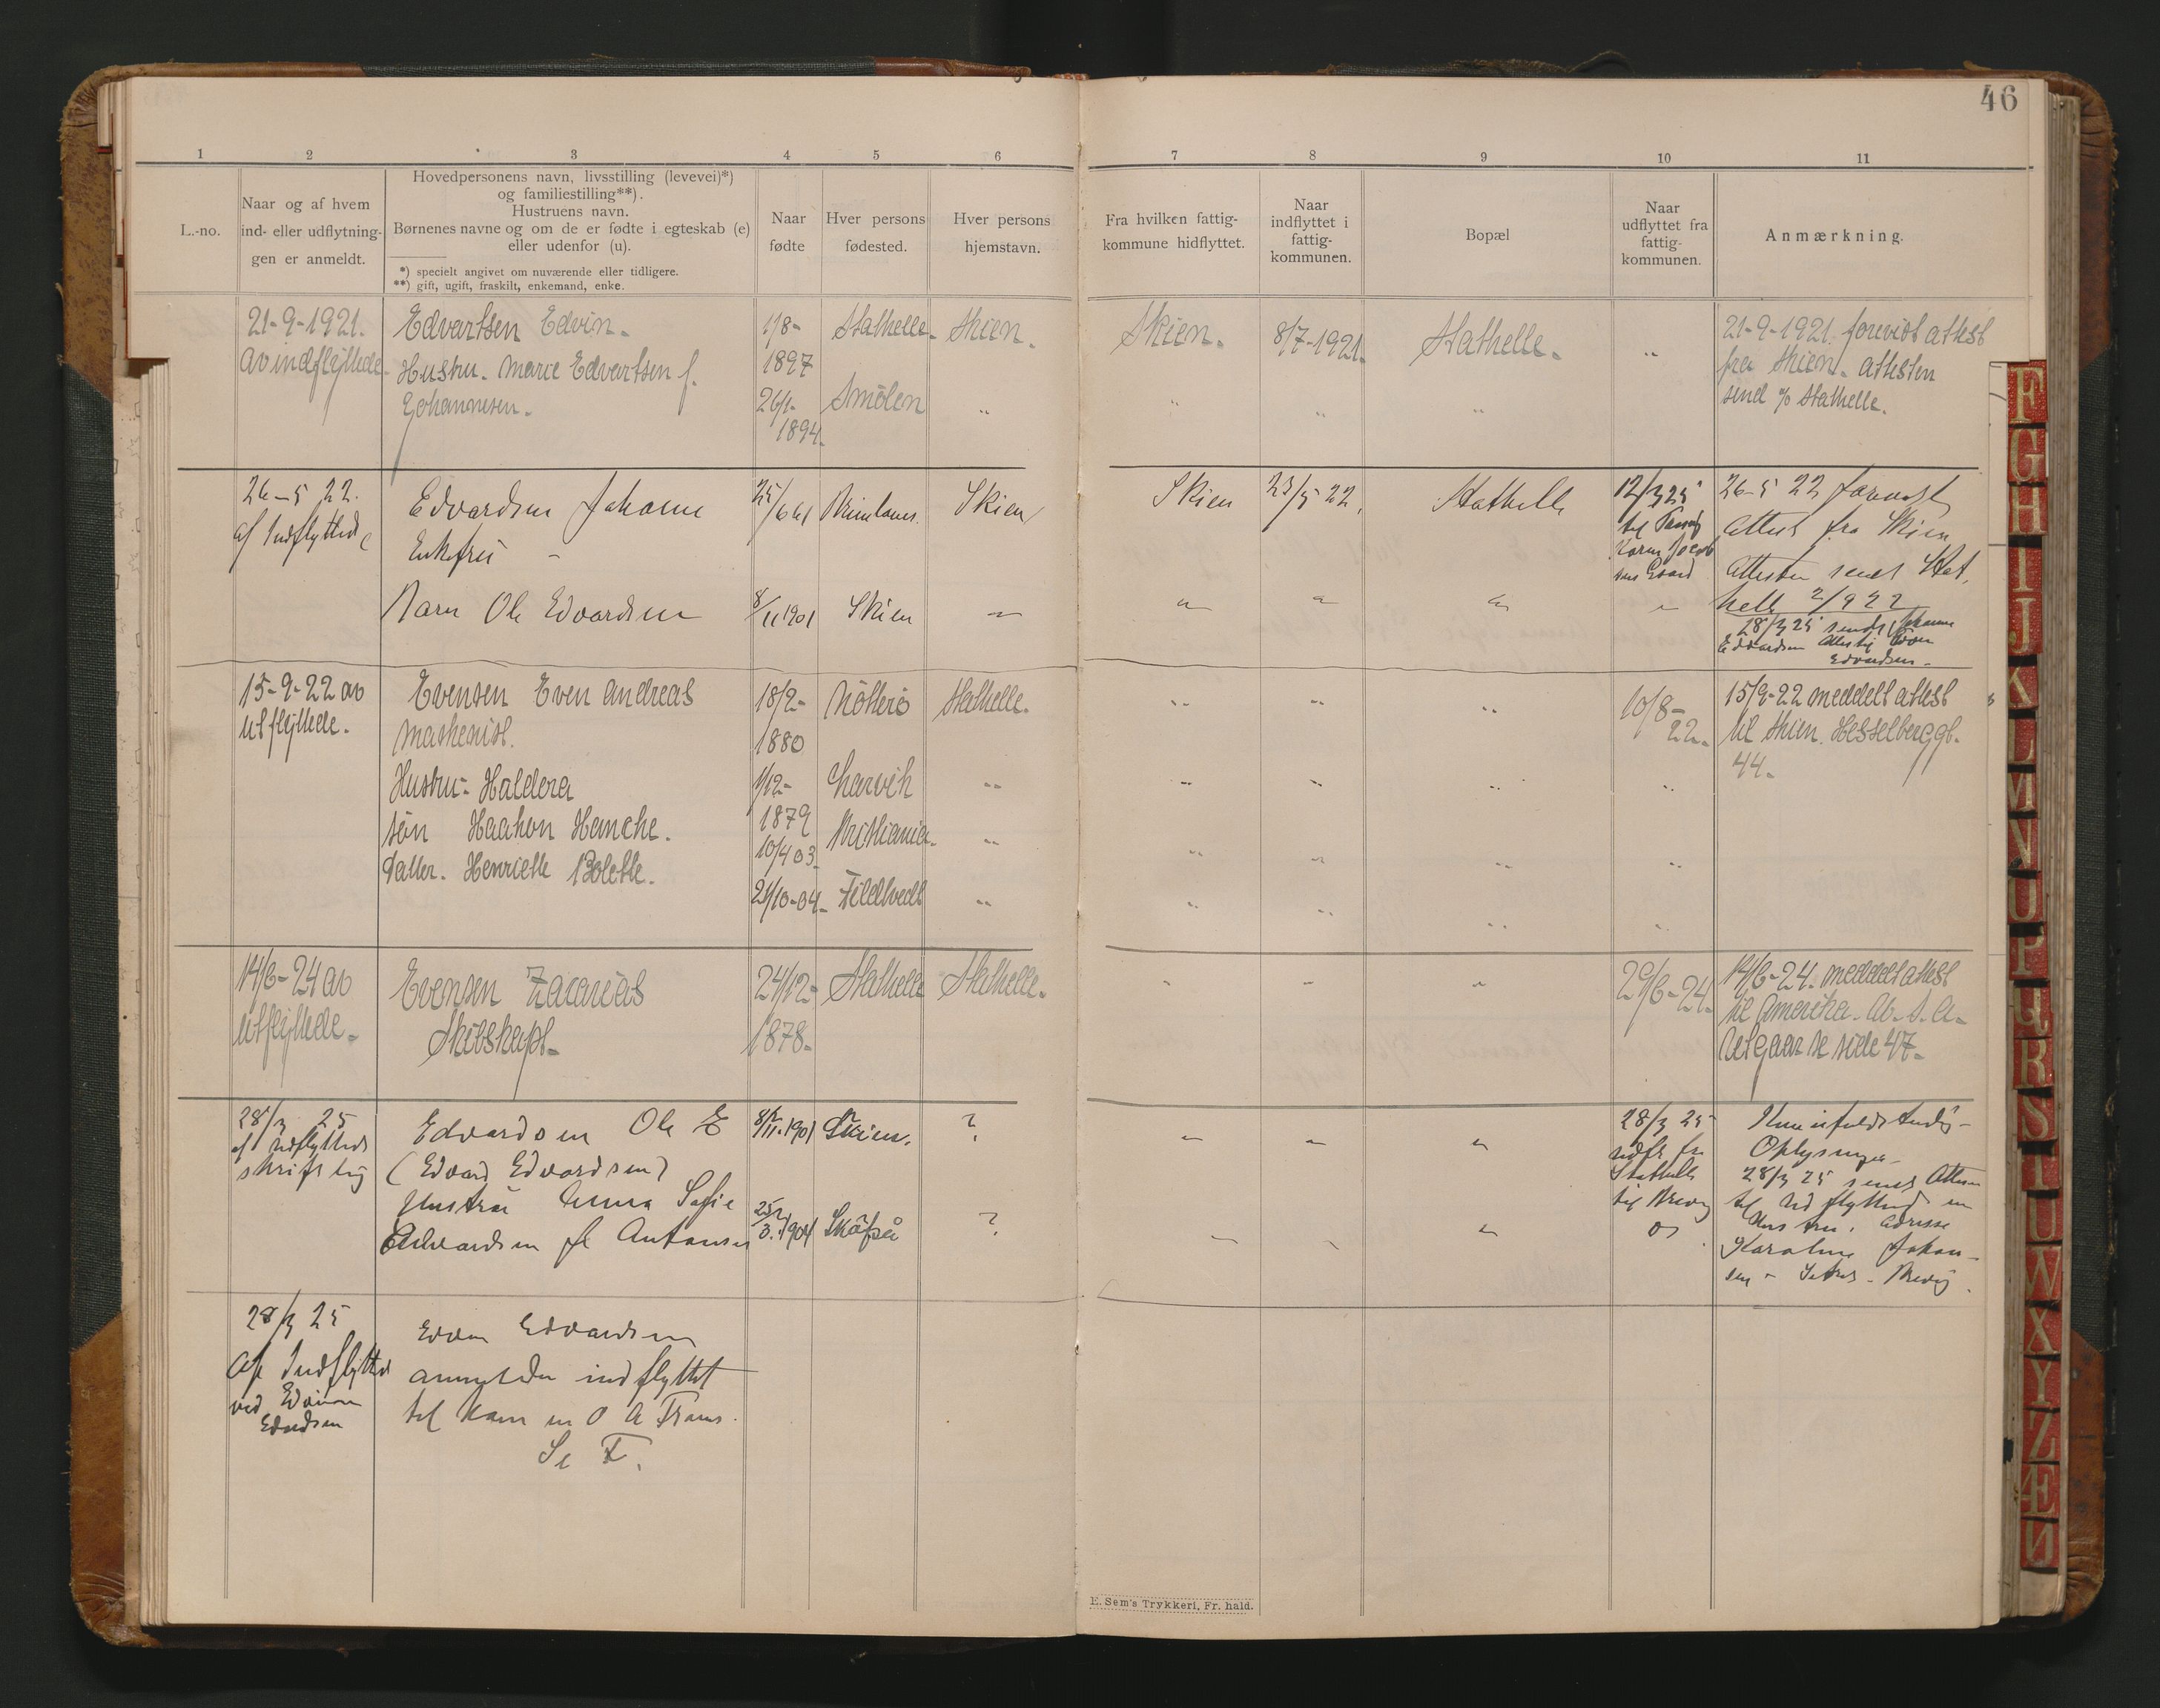 46
1 2 3 4 5 6 7 8 9 10 11
L.-no.
Naar og af hvem
ind- eller udflytning-
gen er anmeldt.
Hovedpersonens navn, livsstilling (levevei)*)
og familiestilling**).
Hustruens navn.
Børnenes navne og om de er fødte i egteskab (e)
eller udenfor (u).
*) specielt angivet om nuværende eller tidligere.
**) gift, ugift, fraskilt, enkemand, enke.
Naar
fødte
Hver persons
fødested.
Hver persons
hjemstavn.
Fra hvilken fattig-
kommune hidflyttet.
Naar
indflyttet i
fattig-
kommunen.
Bopæl
Naar
udflyttet fra
fattig-
kommunen.
Anmærkning.
21-9-1921.
av indflyttede.
Edvartsen Edvin.
Hustru. Marie Edvartsen f.
Johannesen.
1/8-
1897
26/1-
1894.
Stathelle.
Smölen
Skien.
"
Skien.
"
8/7-1921.
"
Stathelle.
"
"
21-9-1921. forevist attest
fra Skien. attesten
send o/ Stathelle.
26-5 22.
af Indflyttede
Edvardsen Johanne
Enkefru -
Barn Ole Edvardsen
25/6 61
8/11 1901
Skien
Skien
"
Skien
"
23/5 22.
"
Stathelle
"
12/3 25
til
"
26-5 22 forevist
Attest fra Skien
Attesten sendt Stat.
helle 2/9 22
28/3 25 sendt Johanne
Edvardsen Attest
Edvardsen -
15-9-22 av
utflyttede.
Evensen Even Andreas
Maskenist.
Hustru- Haldora
Søn Haakon Hemche.
Datter. Henriette Bolette.
18/2-
1880
1/12-
1879
10/4 03.
21/10-04.
Nötterö
Larvik
Kristiania.
Fildtvedt
Stathelle.
"
"
"
10/8-
22.
15/9-22 meddelt attest
til Skien. Hesselberggt.
44.
14/6-24 av
utflyttede.
Evensen Zacarias
Skibskapt.
24/12-
1878.
Stathelle
Stathelle.
29/6-24.
14/6-24. meddelt attest
til Amerika.
Utgaar se side 47.
28/3 25
af Indflyttede
skriftlig
Edvardsen Ole E
(Edvard Edvardsen)
Hustru Anna Sofie
Edvardsen f Antonsen
8/11.1901
25/3.1904
Skien.
?
?
28/3 25
udfl fra
Stathelle
til Brevig
Kun ufuldstendig-
Oplysninger
28/3 25 sendt Attesten
til Udflyttede m
Hustru. Adresse
Karoline Johan-
sen - - Brevig.
28/3 25
Af Indflyttede
ved Edvin
Edvardsen
Edvin Edvardsen
anmelder indflyttet
til ham O A Frans.
Se F.
E. Sem's Trykkeri, Fr. hald.
F
G
H
I
J
K
L
M
N
O
P
Q
R
S
T
U
W
X
Y
Z
Æ
Ø